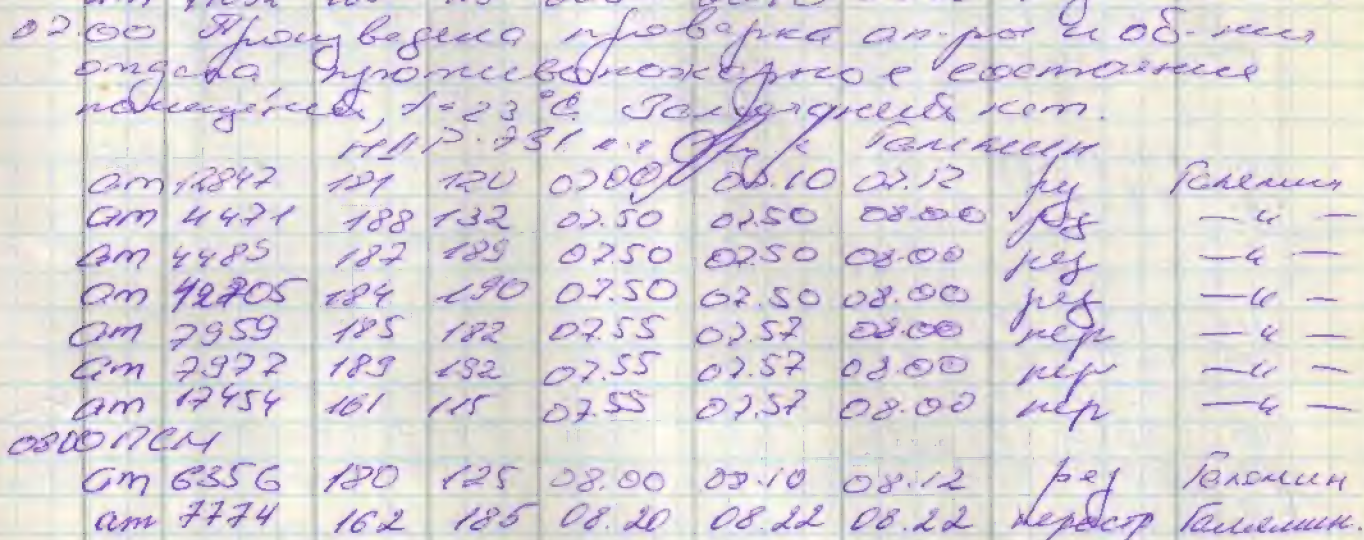 07.00 Произведена проверка ап-ры и об-ния
отдела противопожарное состояния
помещений, t=23°С. Замечаний нет.
Галямин
ат 12847 181 120 0700 07.10 07.12 рез Галямин
ат 4471 188 132 07.50 07.50 08.00 рез —"—
ат 4485 187 189 0750 0750 08.00 рез —"—
ат 42705 184 190 07.50 07.50 08.00 рез —"—
ат 7959 185 182 07.55 07.57 08.00 пер —"—
ат 7977 189 192 07.55 07.57 08.00 пер —"—
ат 17454 161 115 07.55 07.57 08.00 пер —"—
0800 ПСМ
ат 6356 180 125 08.00 08.10 08.12 рез Галямин
ат 7774 162 185 08.20 08.22 08.22 Галямин.